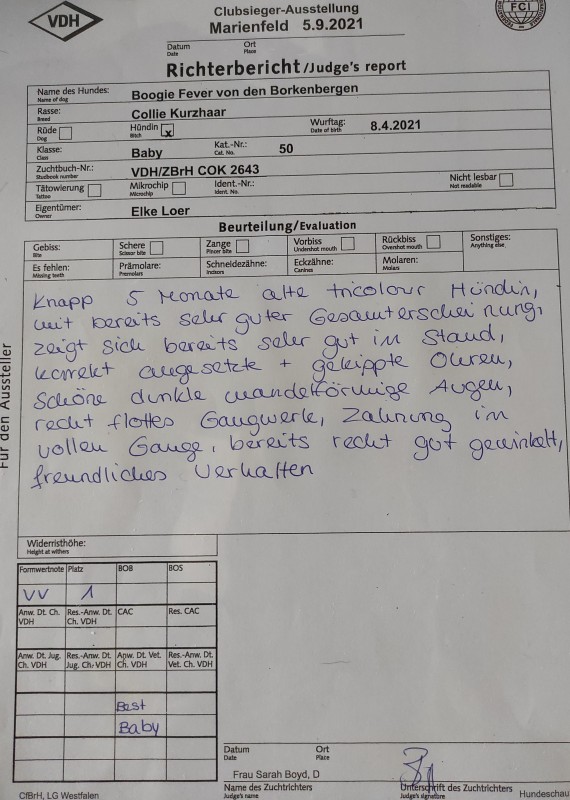 VDH
Clubsieger-Ausstellung
FCI
Marienfeld 5.9.2021
Datum Ort
Date Place
Richterbericht/Judge's report
Name des Hundes: Boogie Fever von den Borkenbergen
Name of dog
Rasse: Collie Kurzhaar
Breed
Rüde Hündin x Wurftag: 8.4.2021
Dog Bitch Date of birth
Klasse: Baby Kat.-Nr.: 50
Class Cat. No.
Zuchtbuch-Nr.: VDH/ZBrH COK 2643
Studbook number
Tätowierung Mikrochip Ident.-Nr.: Nicht lesbar
Tattoo Microchip Ident. No. Not readable
Eigentümer: Elke Loer
Owner
Beurteilung/Evaluation
Gebiss: Schere Zange Vorbiss Rückbiss Sonstiges:
Bite Scissor bite Pincer bite Undershot mouth Overshot mouth Anything else
Es fehlen: Prämolare: Schneidezähne: Eckzähne: Molaren:
Missing teeth Premolars Incisors Canines Molars
Knapp 5 Monate alte tricolour Hündin,
mit bereits sehr guter Gesamterscheinung,
zeigt sich bereits sehr gut im Stand,
korrekt angesetzte + gekippte Ohren,
schöne dunkle mandelförmige Augen,
recht flottes Gangwerk, Zahnung im
vollen Gange, bereits recht gut gewinkelt,
freundliches Verhalten
Für den Aussteller
Widerristhöhe:
Height at withers
Formwertnote Platz BOB BOS
VV 1
Anw. Dt. Ch. VDH Res.-Anw. Dt. Ch. VDH CAC Res. CAC
Anw. Dt. Jug. Ch. VDH Res.-Anw. Dt. Jug. Ch. VDH Anw. Dt. Vet. Ch. VDH Res.-Anw. Dt. Vet. Ch. VDH
Best
Baby
Datum Ort
Date Place
Frau Sarah Boyd, D
Name des Zuchtrichters Unterschrift des Zuchtrichters
Judge's name Judge's signature
CfBrH, LG Westfalen Hundeschau